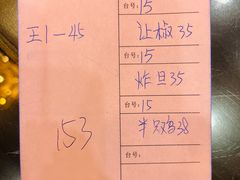 王1一45
153
台号：15
让椒35
台号：15
炸旦35
台号：15
半只鸡38
台号：